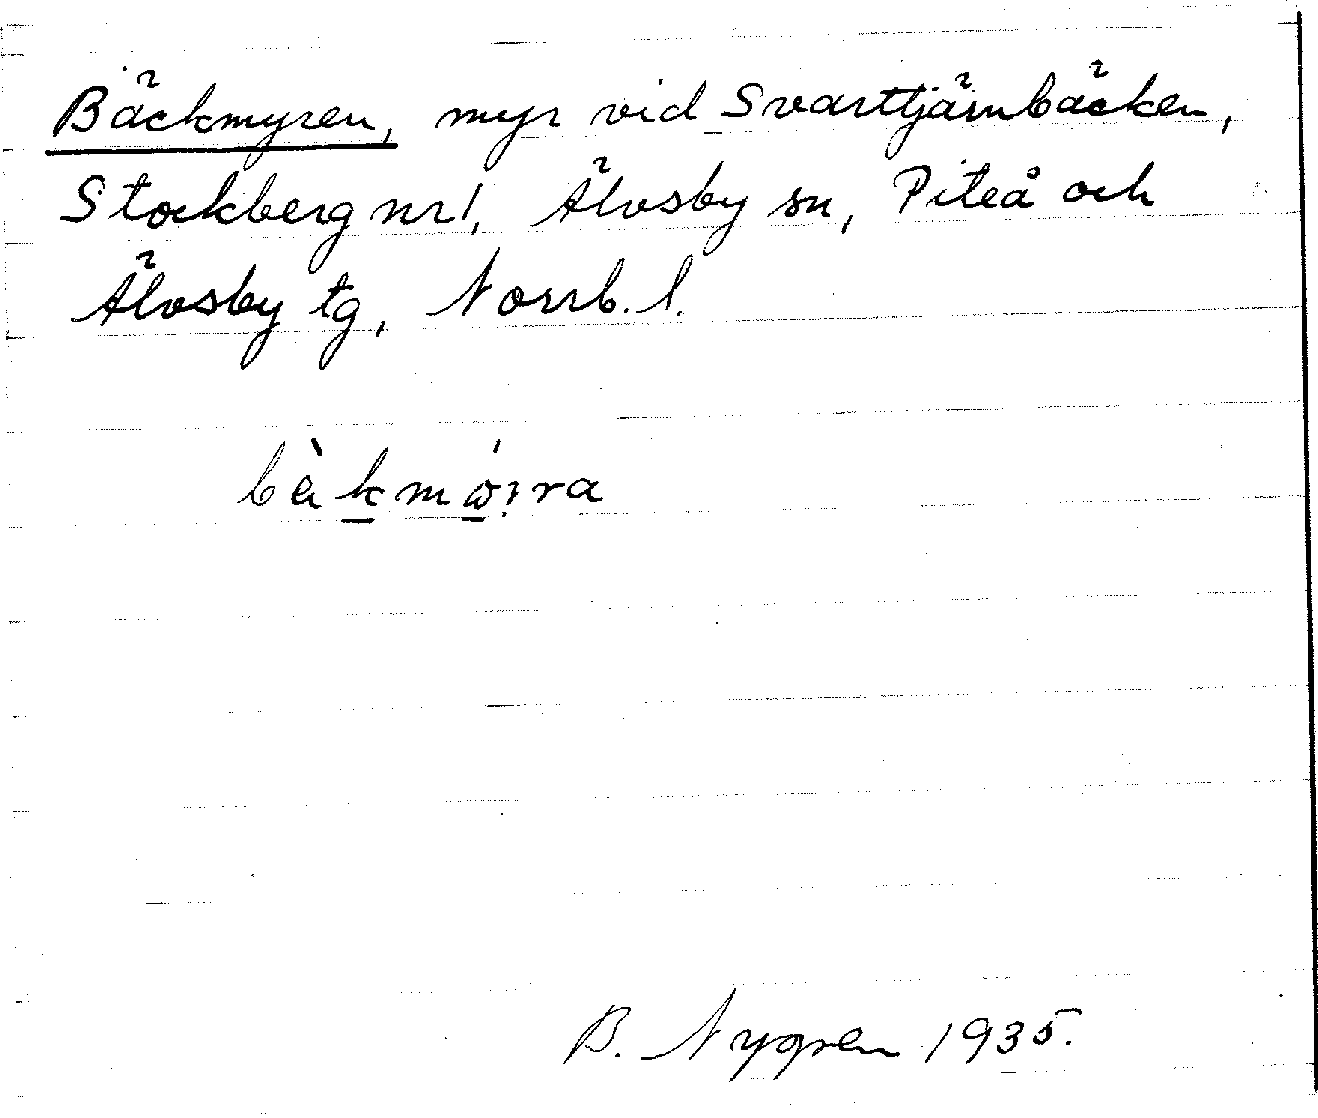 Bäckmyren, myr vid Svarttjärnbäcken,
Stockberg nr 1, Älvsby sn, Piteå och
Älvsby tg, Norrb. l.
B. Nygren 1935.